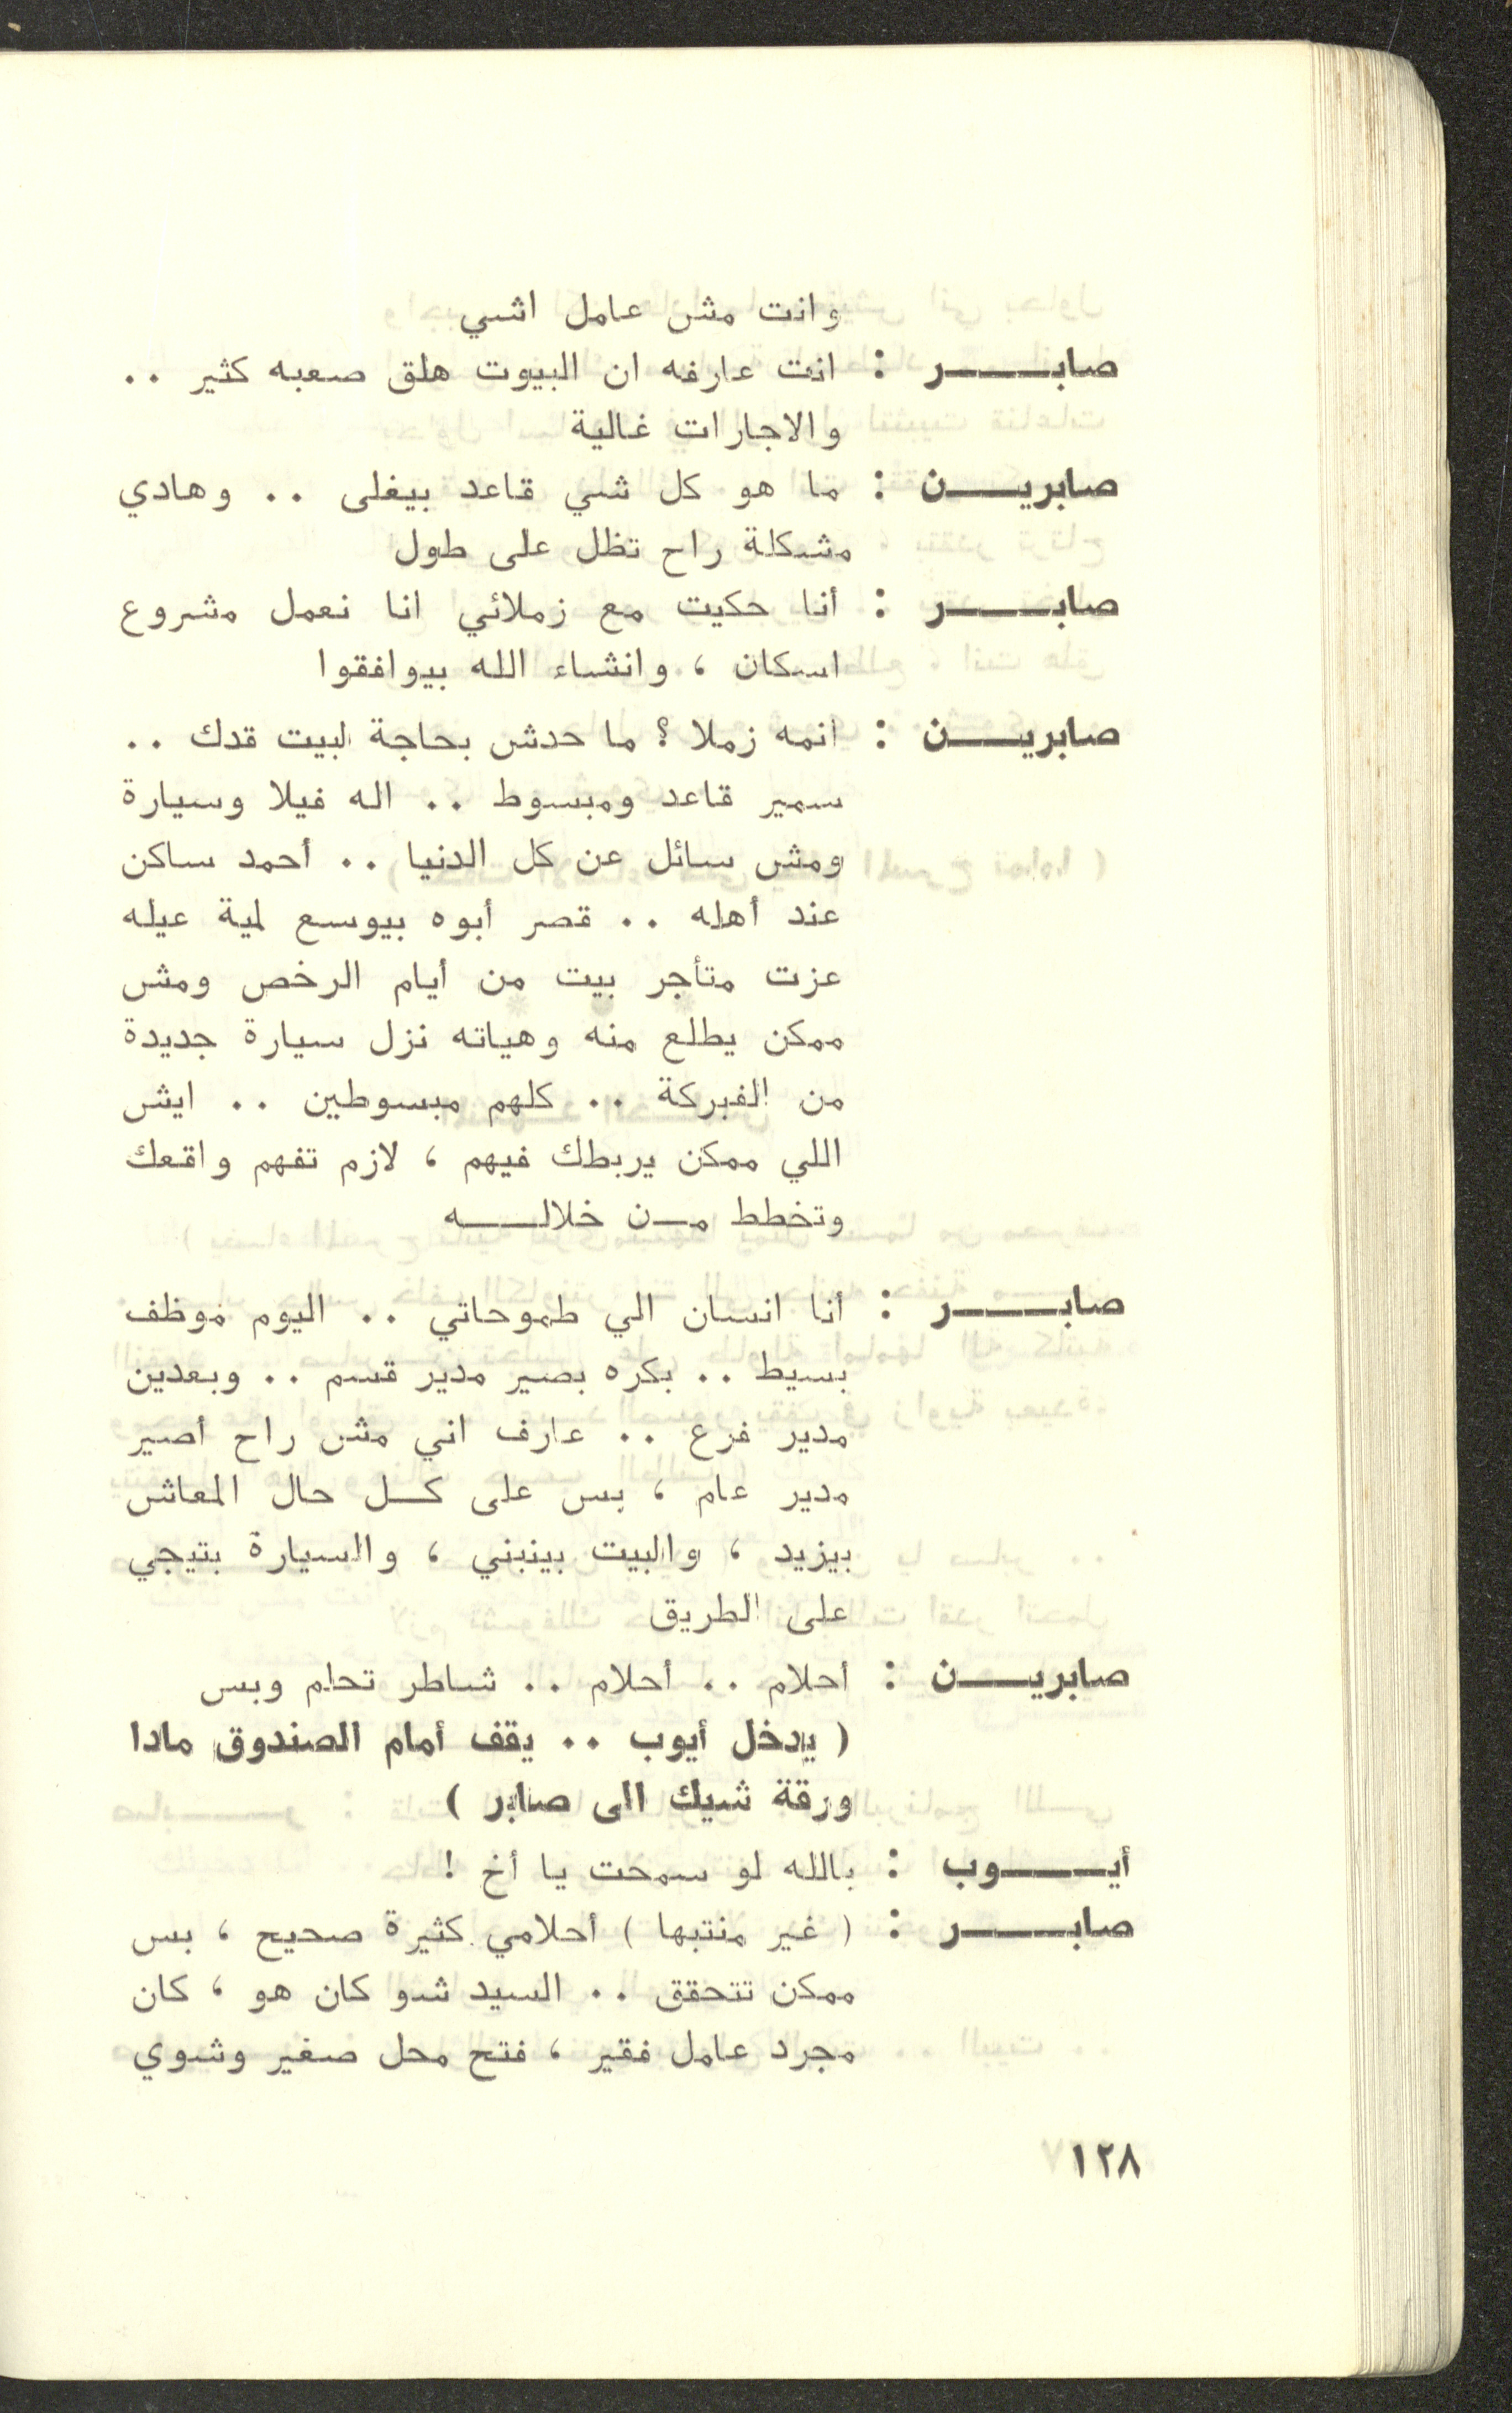 وانت مش عامل اشي
صابر : انت عارفه ان البيوت هلق صعبه كثير ..
والاجارات غالية
صابرين : ما هو كل شي قاعد بيغلى .. وهادي
مشكلة راح تظل على طول
صابر : أنا حكيت مع زملائي انا نعمل مشروع
اسكان ، وانشاء الله بيوافقوا
صابرين : انمه زملا ؟ ما حدش بحاجة لبيت قدك ..
سمير قاعد ومبسوط .. اله فيلا وسيارة
ومش سائل عن كل الدنيا .. أحمد ساكن
عند أهله .. قصر أبوه بيوسع لمية عيله
عزت متأجر بيت من أيام الرخص ومش
ممكن يطلع منه وهياته نزل سيارة جديدة
من الفبركة .. كلهم مبسوطين .. ايش
اللي ممكن يربطك فيهم ، لازم تفهم واقعك
وتخطط من خلاله
صابر : أنا انسان الي طموحاتي .. اليوم موظف
بسيط .. بكره بصير مدير قسم .. وبعدين
مدير فرع .. عارف اني مش راح أصير
مدير عام ، بس على كل حال المعاش
بيزيد ، والبيت بينبني ، والسيارة بتيجي
على الطريق
صابرين : أحلام .. أحلام .. شاطر تحلم وبس
( يدخل أيوب .. يقف أمام الصندوق مادا
ورقة شيك الى صابر )
أيوب : بالله لو سمحت يا أخ !
صابر : ( غير منتبها ) أحلامي كثيرة صحيح ، بس
ممكن تتحقق .. السيد شو كان هو ، كان
مجرد عامل فقير ، فتح محل صغير وشوي
١٢٨